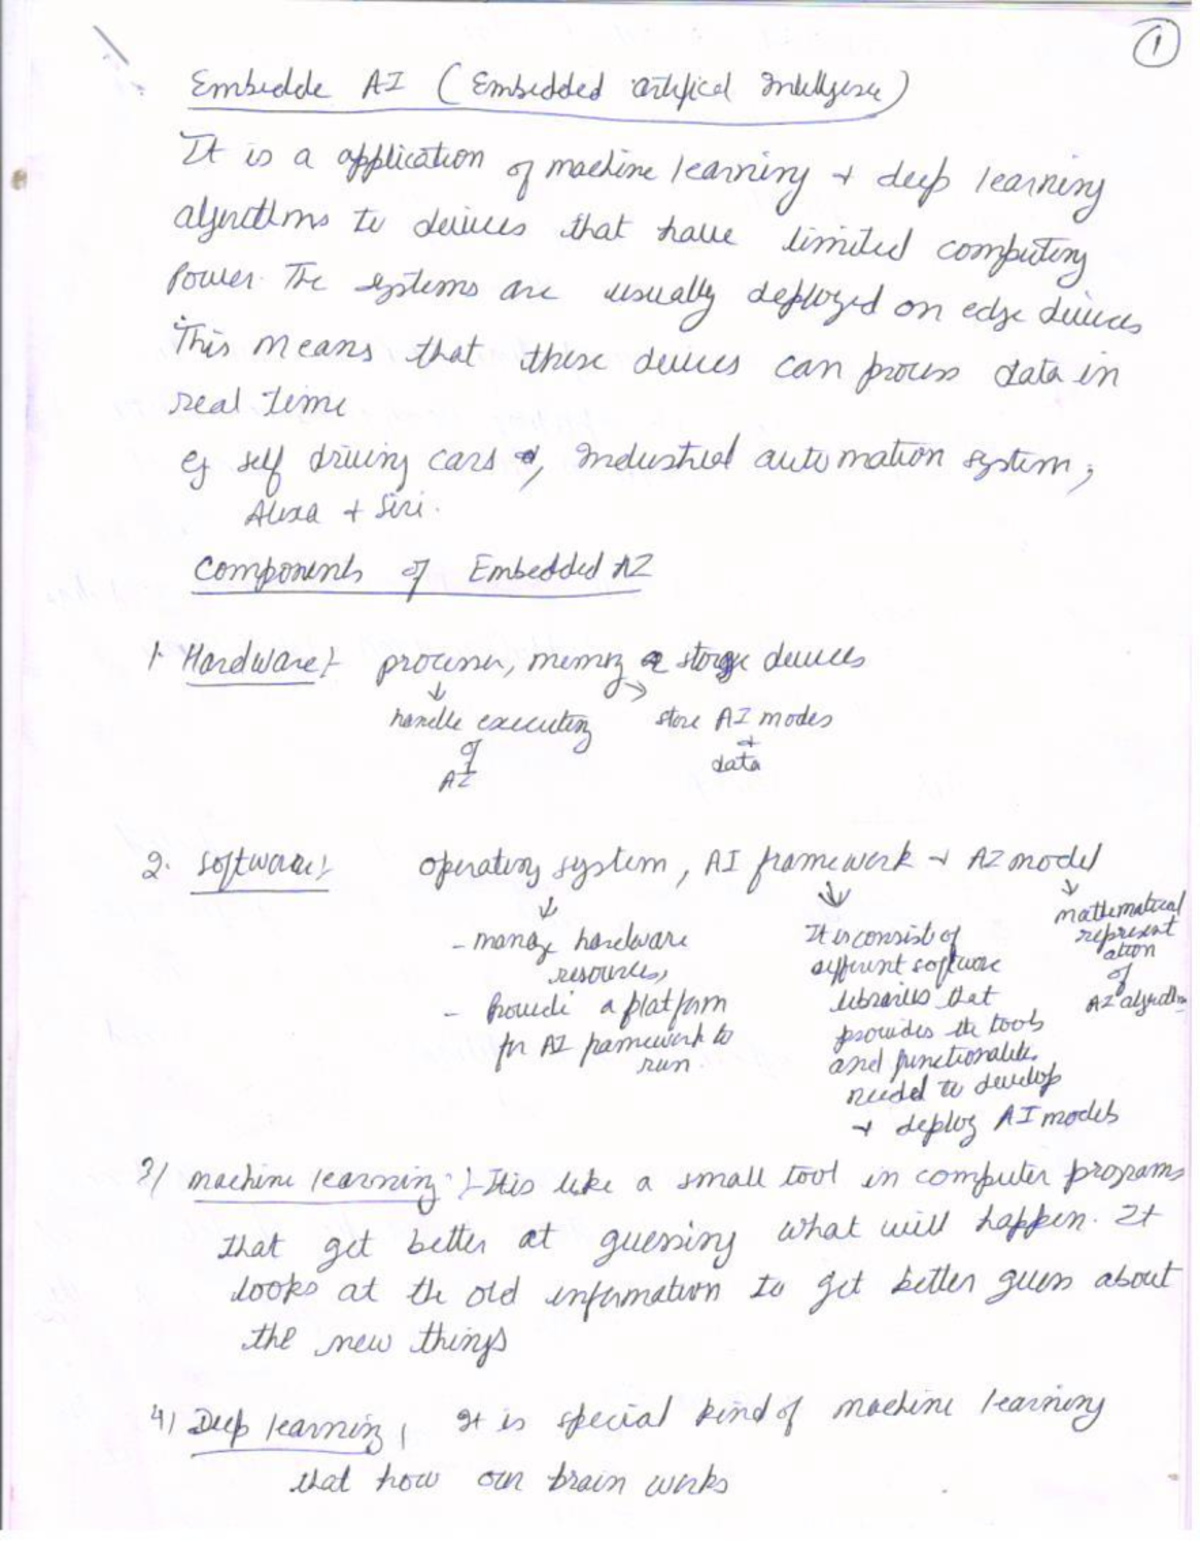 1
Embedde AI (Embedded artifical Intelligence)
It is a application of machine learning + deep learning
algorithms to devices that have limited computing
Power. The systems are usually deployed on edge devices
This means that these devices can process data in
real time
eg self driving cars, Industrial automation system,
Alexa + Siri.
Components of Embedded AI
1. Hardware:- processor, memory & storage devices
↓ →
handle executing store AI modes
of +
AI data
2. Software:- operating system, AI framework + AI model
↓ ↓ ↓
- manage hardware
resources,
- Provide a platform
for AI framework to
run.
It is consist of
different software
libraries that
provides the tools
and functionalities
needed to develop
+ deploy AI models
mathematical
represent
ation
of
AI algorithm
3) machine learning:- It is like a small tool in computer programs
that get better at guessing what will happen. It
looks at the old information to get better guess about
the new things
4) Deep learning, It is special kind of machine learning
that how our brain works